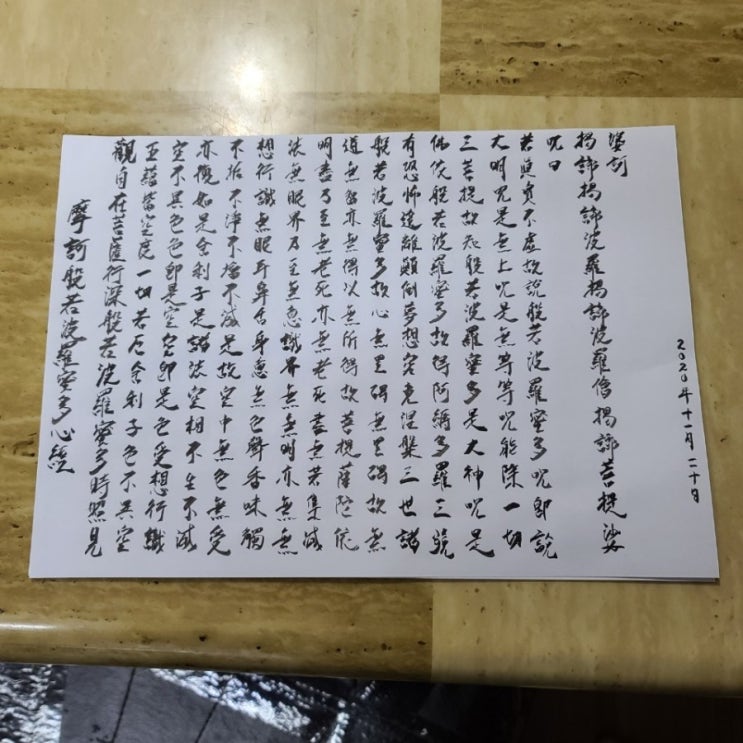 摩訶般若波羅蜜多心經
觀自在菩薩行深般若波羅蜜多時照見
五蘊皆空度一切若厄舍利子色不異空
空不異色色即是空空即是色受想行識
亦復如是舍利子是諸法空相不生不滅
不垢不淨不增不減是故空中無色無受
想行識無眼耳鼻舌身意無色聲香味觸
法無眼界乃至無意識界無無明亦無無
明盡乃至無老死亦無老死盡無苦集滅
道無智亦無得以無所得故菩提薩陀依
般若波羅蜜多故心無罣礙無罣礙故無
有恐怖遠離顛倒夢想究竟涅槃三世諸
佛依般若波羅蜜多故得阿耨多羅三藐
三菩提故知般若波羅蜜多是大神咒是
大明咒是無上咒是無等等咒能除一切
苦真實不虛故說般若波羅蜜多咒即說
咒曰
揭諦揭諦波羅揭諦波羅僧揭諦菩提娑
婆訶
2020年十一月二十日